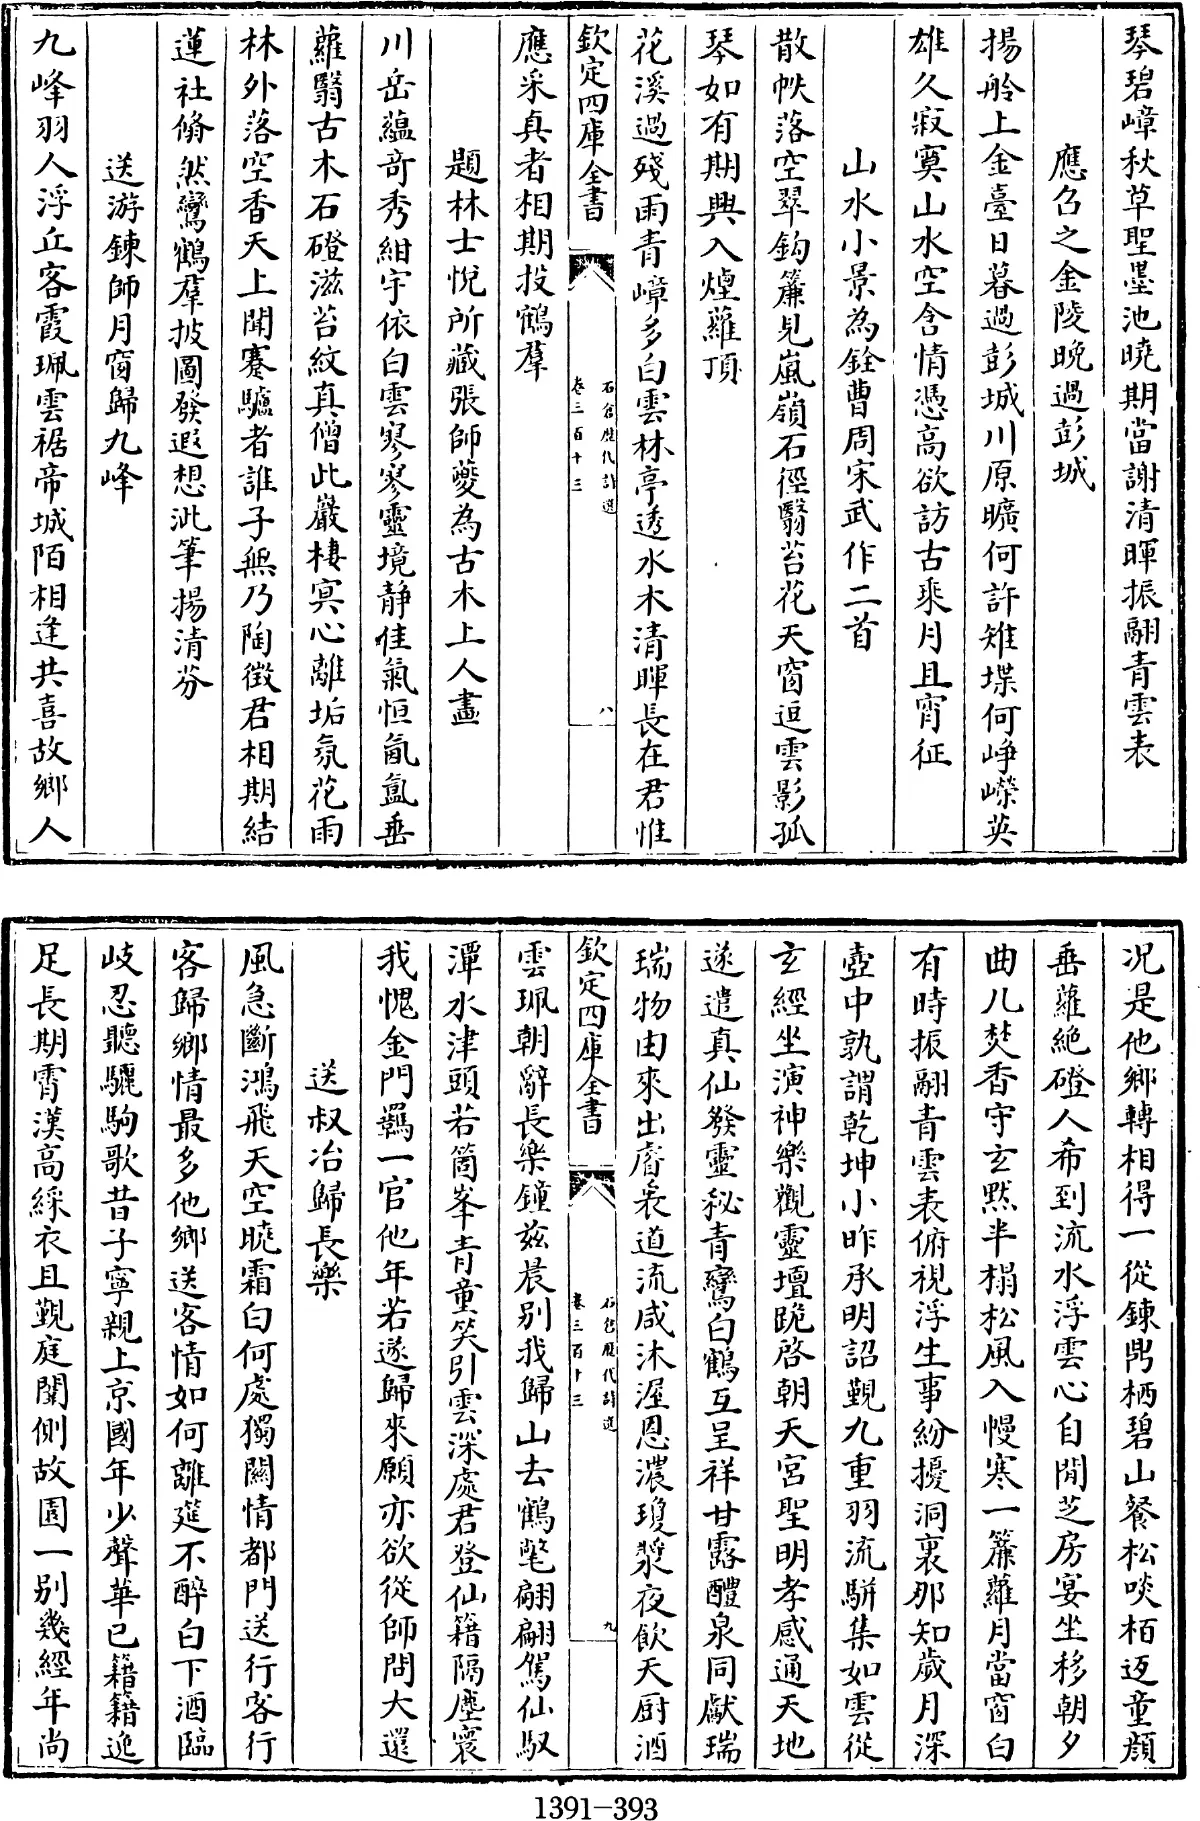 琴碧嶂秋草聖墨池曉期當謝清暉振翮青雲表
應召之金陵晚過彭城
揚舲上金臺日暮過彭城川原曠何許雉堞何崢嶸英
雄久寂寞山水空含情憑高欲訪古乘月且宵征
山水小景為銓曹周宋武作二首
散帙落空翠鈎簾見嵐嶺石徑翳苔花天窗逗雲影孤
琴如有期興入煙蘿頂
花溪過殘雨青嶂多白雲林亭透水木清暉長在君惟
應采真者相期投鶴羣
題林士悅所藏張師夔為古木上人畫
川岳蘊奇秀紺宇依白雲寥寥靈境靜佳氣恒氤氳垂
蘿翳古木石磴滋苔紋真僧此巖棲冥心離垢氛花雨
林外落空香天上聞蹇驢者誰子無乃陶徵君相期結
蓮社翛然鸞鶴羣披圖發遐想泚筆揚清芬
送游鍊師月窗歸九峰
九峰羽人浮丘客霞珮雲裾帝城陌相逢共喜故鄉人
欽定四庫全書
石倉歷代詩選
卷三百十三
八
況是他鄉轉相得一從鍊鼎栖碧山餐松啖栢返童顏
垂蘿絕磴人希到流水浮雲心自閒芝房宴坐移朝夕
曲几焚香守玄默半榻松風入幔寒一簾蘿月當窗白
有時振翮青雲表俯視浮生事紛擾洞裏那知歲月深
壺中孰謂乾坤小昨承明詔覲九重羽流駢集如雲從
玄經坐演神樂觀靈壇跪啓朝天宮聖明孝感通天地
遂遣真仙發靈秘青鸞白鶴互呈祥甘露醴泉同獻瑞
瑞物由來出睿衷道流咸沐渥恩濃瓊漿夜飲天厨酒
雲珮朝辭長樂鐘兹晨别我歸山去鶴氅翩翩駕仙馭
潭水津頭若箇峯青童笑引雲深處君登仙籍隔塵寰
我愧金門羈一官他年若遂歸來願亦欲從師問大還
送叔冶歸長樂
風急斷鴻飛天空曉霜白何處獨關情都門送行客行
客歸鄉情最多他鄉送客情如何離筵不醉白下酒臨
岐忍聽驪駒歌昔子寧親上京國年少聲華已籍籍逸
足長期霄漢高綵衣且覲庭闈側故園一別幾經年尚
欽定四庫全書
石倉歷代詩選
卷三百十三
九
1391-393